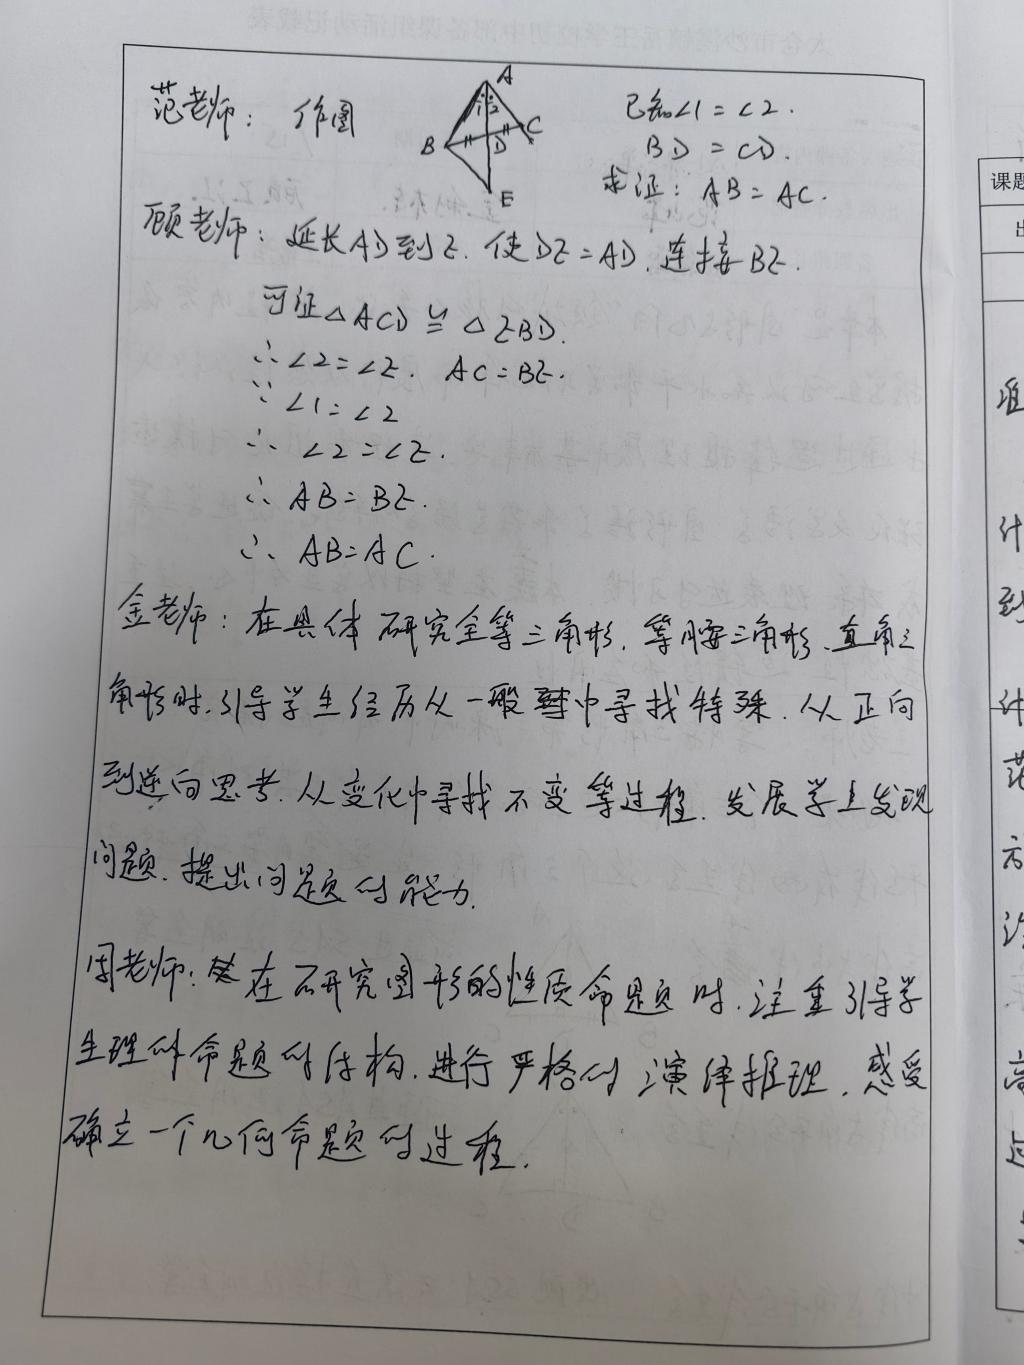 范老师：作图
A
1 2
B D C
E
已知∠1=∠2.
BD=CD.
求证：AB=AC.
顾老师：延长AD到E.使DE=AD.连接BE.
可证△ACD≌△EBD.
∴∠2=∠E. AC=BE.
∵∠1=∠2
∴∠2=∠E.
∴AB=BE.
∴AB=AC.
金老师：在具体研究全等三角形.等腰三角形、直角三
角形时.引导学生经历从一般中寻找特殊.从正向
到逆向思考.从变化中寻找不变等过程.发展学生发现
问题.提出问题的能力.
周老师：在研究图形的性质命题时.注重引导学
生理解命题的结构.进行严格的演绎推理.感受
确立一个几何命题的过程.
课题
出
准
什
到
计
范
方
注
高
过